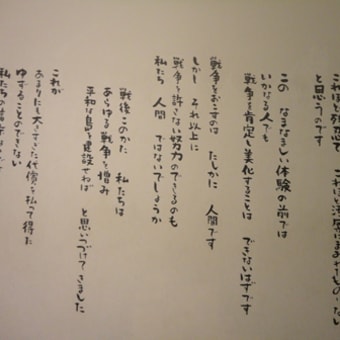 これほど残忍で これほど汚辱にまみれたものはない
と思うのです
この なまなましい体験の前では
いかなる人でも
戦争を肯定し美化することは できないはずです
戦争をおこすのは たしかに 人間です
しかし それ以上に
戦争を許さない努力のできるのも
私たち 人間 ではないでしょうか
戦後このかた 私たちは
あらゆる戦争を憎み
平和な島を建設せねば と思いつづけてきました
これが
あまりにも大きすぎた代償を払って得た
ゆずることのできない
私たちの信条なのです